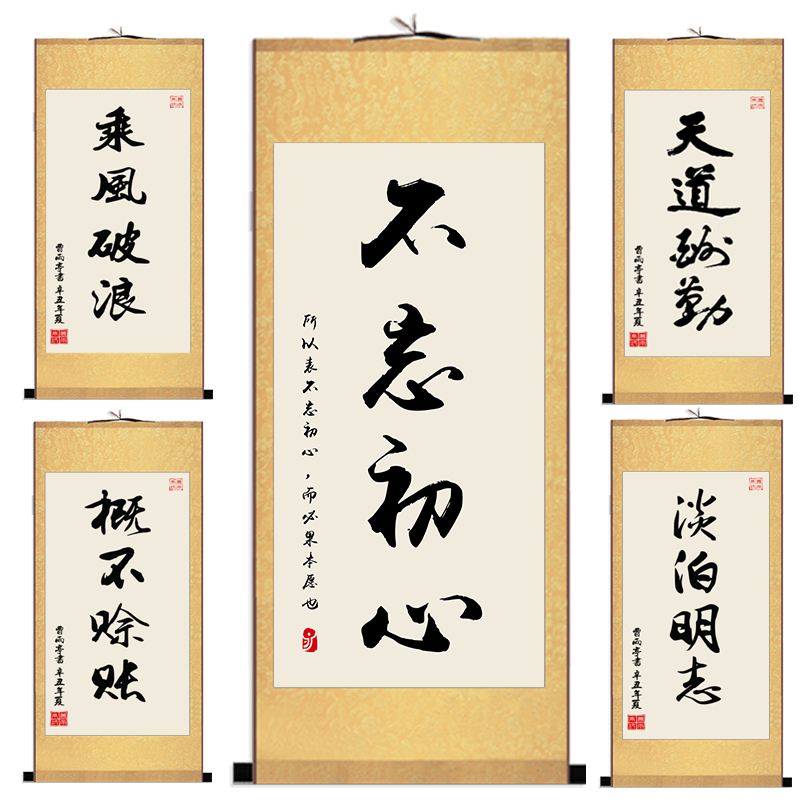 乘風破浪
曹雨亭書 辛丑年夏
不忘初心
所以表不忘初心，而必果本愿也
天道酬勤
曹雨亭書 辛丑年夏
概不赊账
曹雨亭書 辛丑年夏
淡泊明志
曹雨亭書 辛丑年夏